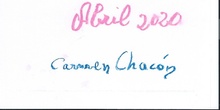 Abril 2020
Carmen Chacón